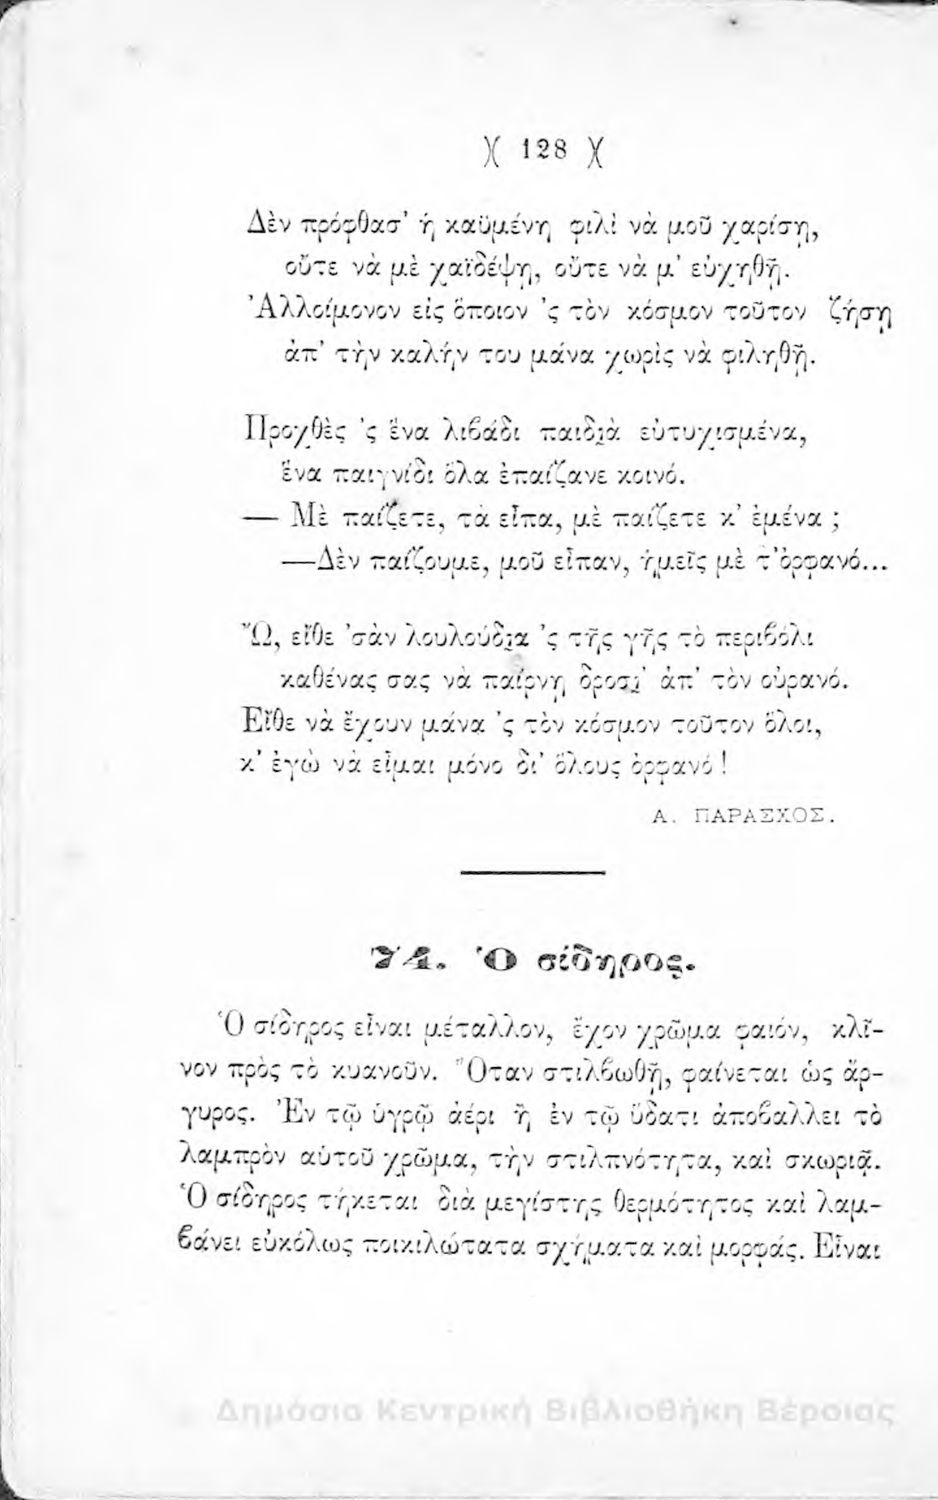 )( 128 )(
Δὲν πρόφθασ' ἡ καϋμένη φιλὶ νὰ μοῦ χαρίσῃ,
οὔτε νὰ μὲ χαϊδέψῃ, οὔτε νὰ μ' εὐχηθῇ.
Ἀλλοίμονον εἰς ὅποιον 'ς τὸν κόσμον τοῦτον ζήσῃ
ἀπ' τὴν καλήν του μάνα χωρὶς νὰ φιληθῇ.
Προχθὲς 'ς ἕνα λιβάδι παιδιὰ εὐτυχισμένα,
ἕνα παιγνίδι ὅλα ἐπαίζανε κοινό.
— Μὲ παίζετε, τὰ εἶπα, μὲ παίζετε κ' ἐμένα ;
—Δὲν παίζουμε, μοῦ εἶπαν, ἡμεῖς μὲ τ'ὀρφανό...
Ὢ, εἴθε 'σὰν λουλούδια 'ς τῆς γῆς τὸ περιβόλι
καθένας σας νὰ παίρνῃ δροσι' ἀπ' τὸν οὐρανό.
Εἴθε νὰ ἔχουν μάνα 'ς τὸν κόσμον τοῦτον ὅλοι,
κ' ἐγὼ νὰ εἶμαι μόνο δι' ὅλους ὀρφανό !
Α. ΠΑΡΑΣΧΟΣ.
74. Ὁ σίδηρος.
Ὁ σίδηρος εἶναι μέταλλον, ἔχον χρῶμα φαιόν, κλῖ-
νον πρὸς τὸ κυανοῦν. Ὅταν στιλβωθῇ, φαίνεται ὡς ἄρ-
γυρος. Ἐν τῷ ὑγρῷ ἀέρι ἢ ἐν τῷ ὕδατι ἀποβαλλει τὸ
λαμπρὸν αὑτοῦ χρῶμα, τὴν στιλπνότητα, καὶ σκωριᾷ.
Ὁ σίδηρος τήκεται διὰ μεγίστης θερμότητος καὶ λαμ-
βάνει εὐκόλως ποικιλώτατα σχήματα καὶ μορφάς. Εἶναι
Δημόσια Κεντρική Βιβλιοθήκη Βέροιας